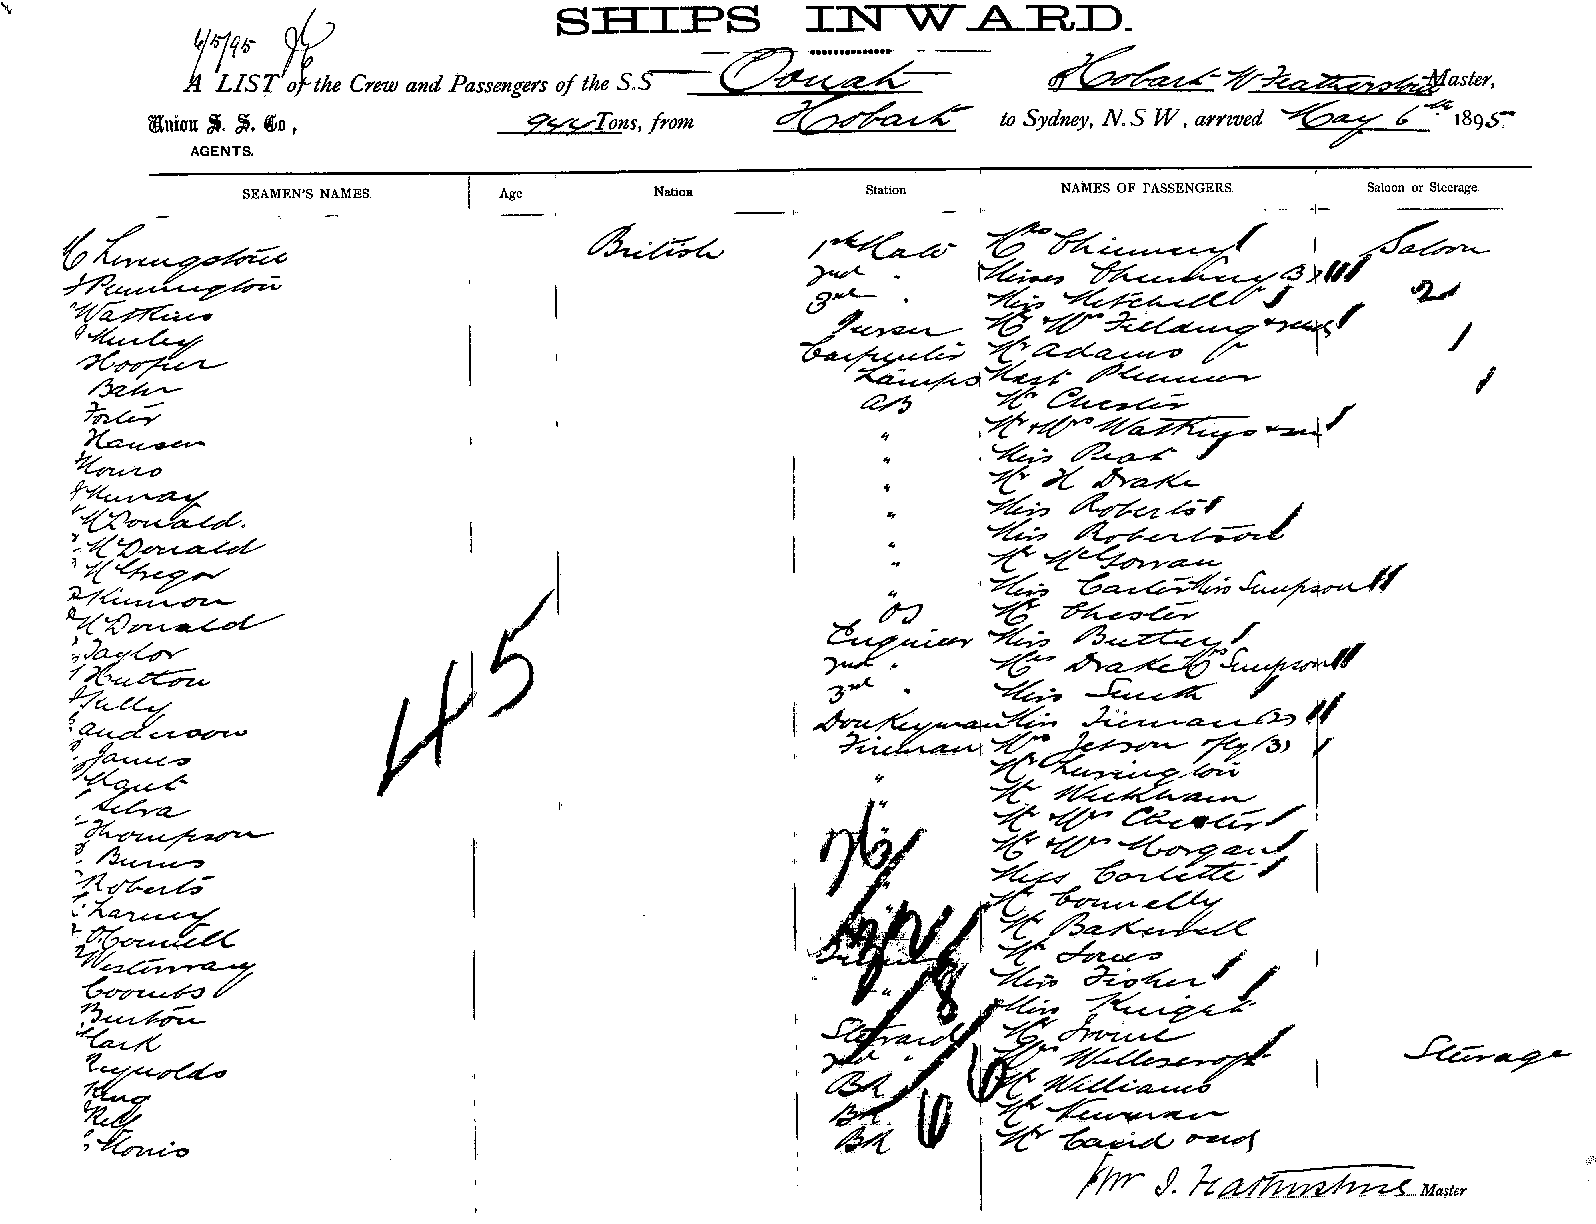 SHIPS INWARD.
6/5/95
A LIST of the Crew and Passengers of the S.S Oonah of Hobart W Featherstone Master,
Union S. S. Co, 944 Tons, from Hobart to Sydney, N.S W, arrived May 6th 1895
AGENTS.
SEAMEN'S NAMES. Age Nation Station NAMES OF PASSENGERS. Saloon or Steerage.
Livingstone British 1st Mate Mrs Saloon
Pennington 2nd " Misses (3)
Watkins 3rd " Miss Mitchell 2
Murley Purser Mr Mrs Fielding &
Hooper Carpenter Mr Adams
Bahr Lamps Mast Plummer
Foster AB Mr Chester
Hansen " Mr & Mrs Watkins & son
Monro " Miss Peat
Murray " Mr H Drake
McDonald. " Miss Roberts
McDonald " Miss Robertson
McGregor " Mr McGowan
Kinnon " Miss Carter Miss Simpson
McDonald OS Mr Chester
Taylor Engineer Miss Butler
Hutton 2nd " Mrs Drake Simpson
3rd " Miss Smith
Anderson Donkeyman Miss (2)
James Fireman Mrs Jetson & fly (3)
45
" Mr Lurington
Silva " Mr Wickham
Thompson " Mr Mrs Chester
Burns Mr & Mrs Morgan
Roberts Miss Corlette
Larney Mr Connelly
O'Connell Mr Bakewell
Westenway Mr Jones
Coombs " Miss Fisher
Burton Miss Knight
Clark Steward Mr
Reynolds 2nd " Mrs Steerage
King BR Mr Williams
BR Mr Newman
Morris BR Mr
Wm J. Featherstone Master